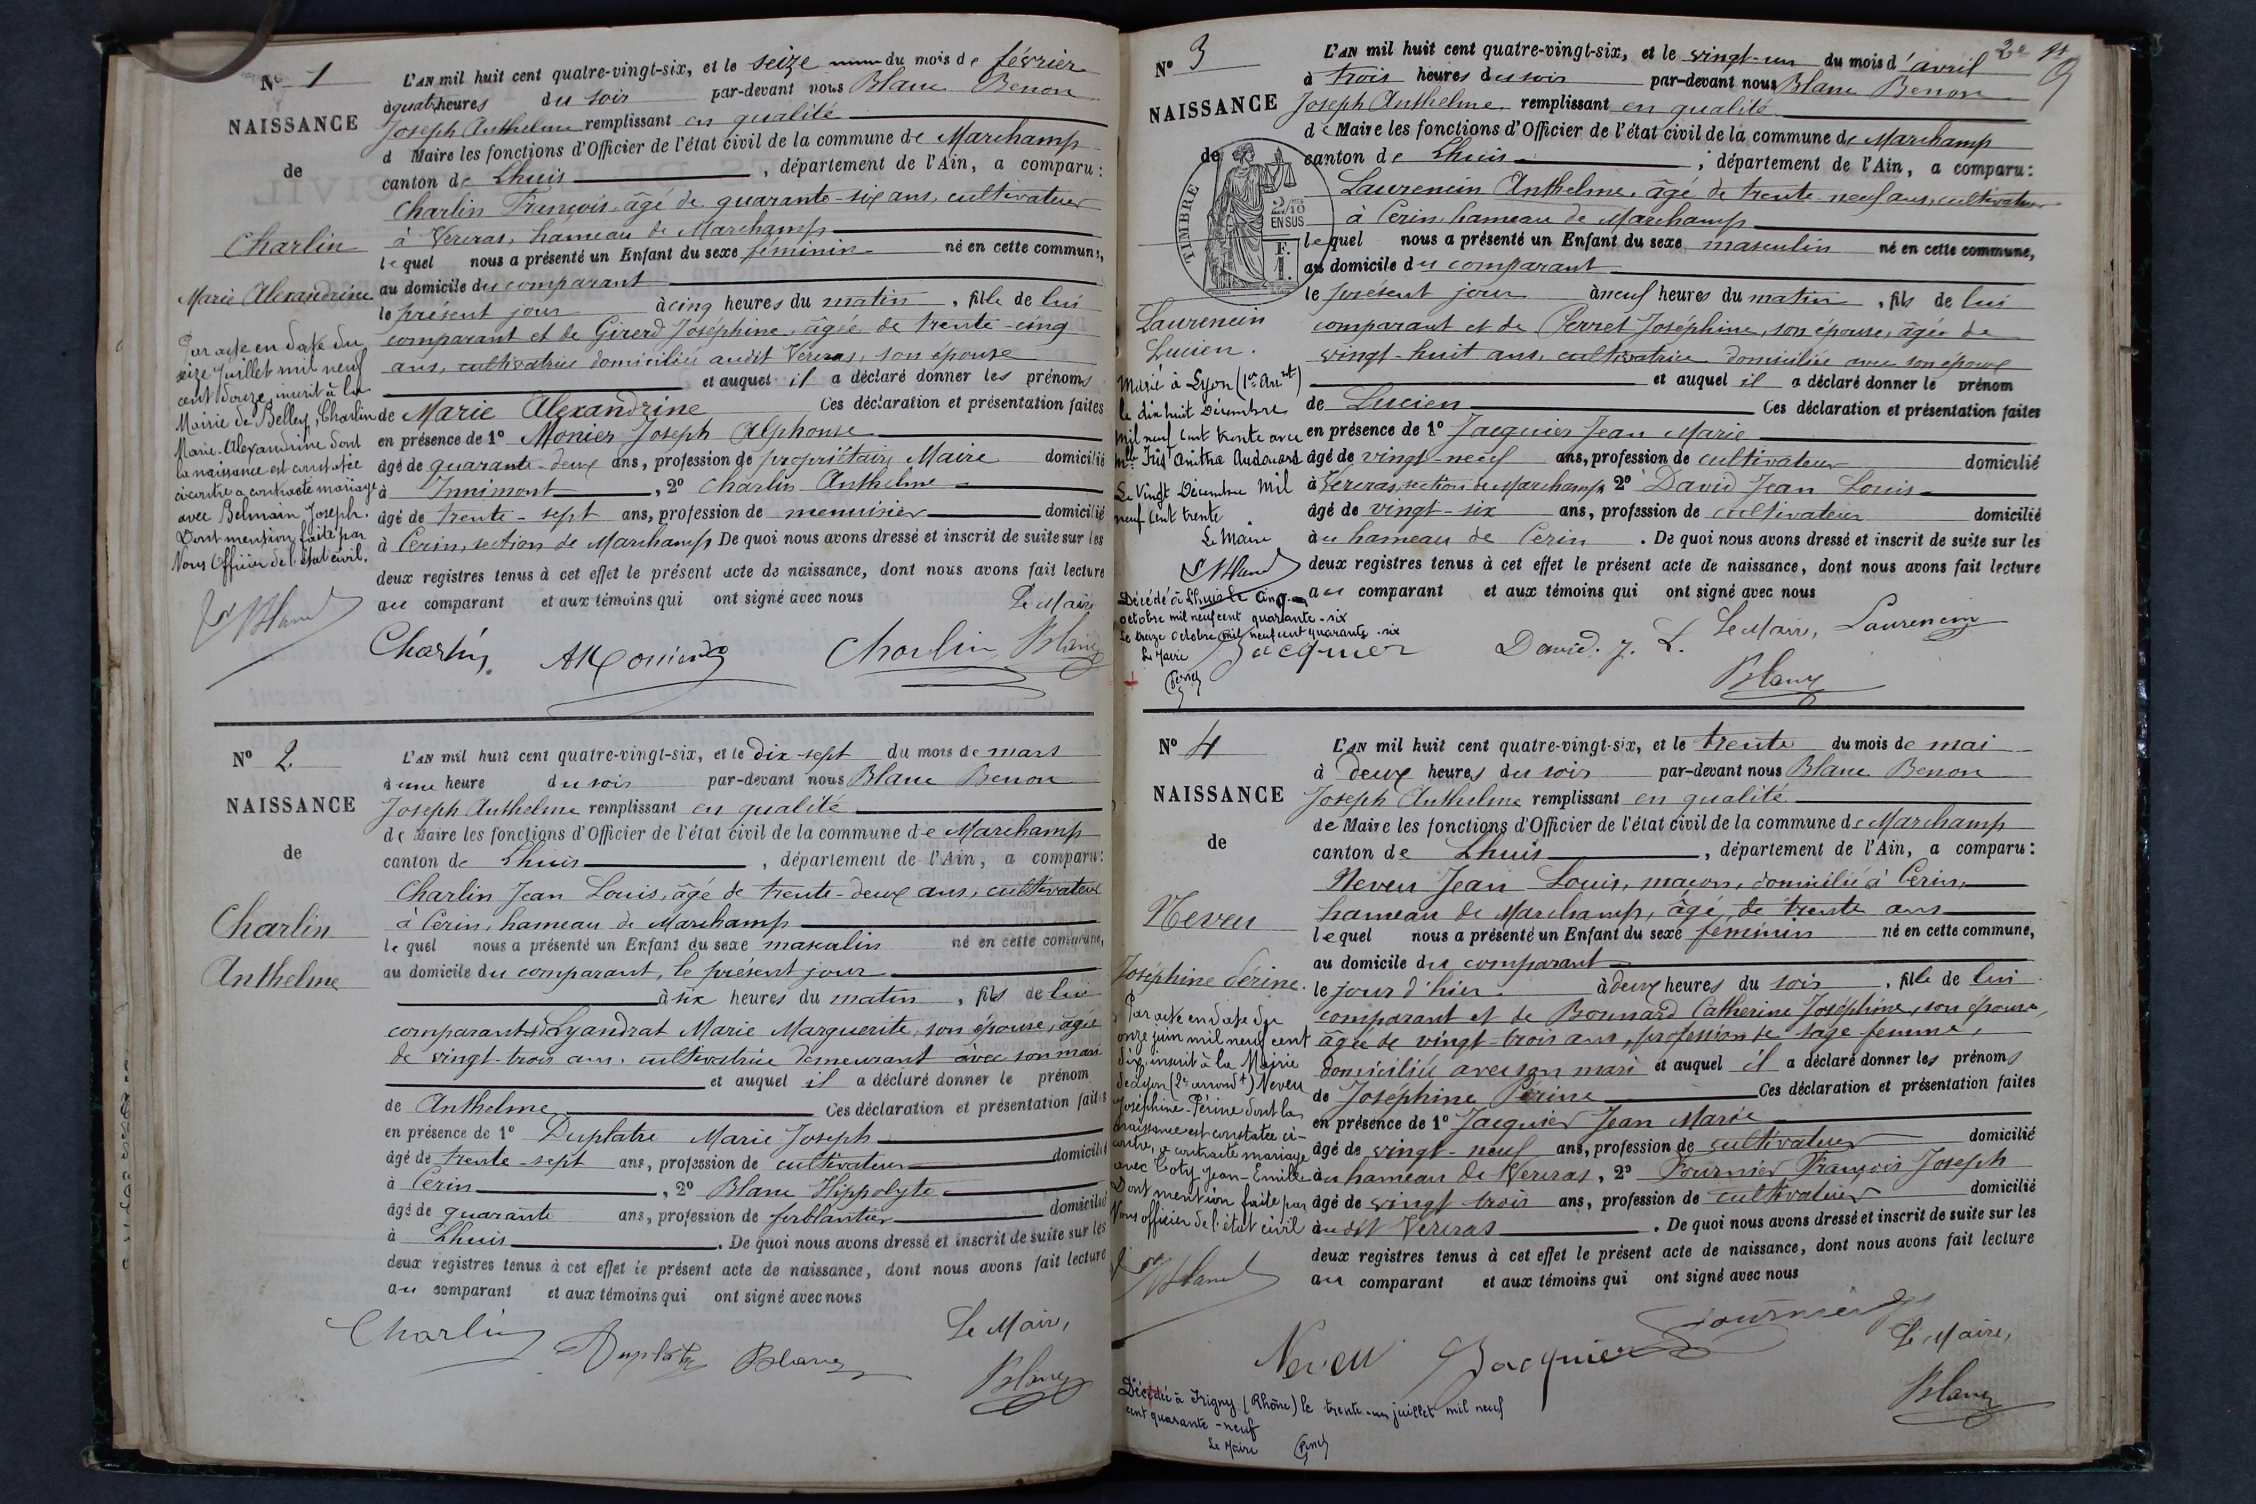 N° 1
NAISSANCE
de
Charlin
Marie Alexandrine
Par acte en date du
seize Juillet mil neuf
cent douze, inscrit à la
Mairie de Belley, Charlin
Marie-Alexandrine dont
la naissance est constatée
ci-contre a contracté mariage
avec Belmain Joseph.
Dont mention faite par
Nous Officier de l'état civil.
Blanc
L'AN mil huit cent quatre-vingt-six, et le seize du mois de février
à quatre heures du soir par-devant nous Blanc Benon
Joseph Anthelme remplissant en qualité
d Maire les fonctions d'Officier de l'état civil de la commune de Marchamp
canton de Lhuis, département de l'Ain, a comparu :
Charlin François, âgé de quarante-six ans, cultivateur
à Vereras, hameau de Marchamp
lequel nous a présenté un Enfant du sexe féminin né en cette commune,
au domicile du comparant
le présent jour à cinq heures du matin, fille de lui
comparant et de Girerd Joséphine, âgée de trente-cinq
ans, cultivatrice domiciliée audit Vereras, son épouse
et auquel il a déclaré donner les prénoms
de Marie Alexandrine Ces déclaration et présentation faites
en présence de 1° Monier Joseph Alphonse
âgé de quarante-deux ans, profession de propriétaire, Maire domicilié
à Innimont, 2° Charlin Anthelme
âgé de trente-sept ans, profession de menuisier domicilié
à Cerin, section de Marchamp De quoi nous avons dressé et inscrit de suite sur les
deux registres tenus à cet effet le présent acte de naissance, dont nous avons fait lecture
au comparant et aux témoins qui ont signé avec nous
Le Maire
Charlin AMonier Charlin Blanc
N° 2
NAISSANCE
de
Charlin
Anthelme
L'AN mil huit cent quatre-vingt-six, et le dix-sept du mois de mars
à une heure du soir par-devant nous Blanc Benon
Joseph Anthelme remplissant en qualité
de Maire les fonctions d'Officier de l'état civil de la commune de Marchamp
canton de Lhuis, département de l'Ain, a comparu :
Charlin Jean Louis, âgé de trente-deux ans, cultivateur
à Cerin, hameau de Marchamp
lequel nous a présenté un Enfant du sexe masculin né en cette commune,
au domicile du comparant, le présent jour
à six heures du matin, fils de lui
comparant & de Lyandrat Marie Marguerite, son épouse, âgée
de vingt-trois ans, cultivatrice demeurant avec son mari
et auquel il a déclaré donner le prénom
de Anthelme Ces déclaration et présentation faites
en présence de 1° Duplatre Marie Joseph
âgé de trente-sept ans, profession de cultivateur domicilié
à Cerin, 2° Blanc Hippolyte
âgé de quarante ans, profession de ferblantier domicilié
à Lhuis. De quoi nous avons dressé et inscrit de suite sur les
deux registres tenus à cet effet le présent acte de naissance, dont nous avons fait lecture
au comparant et aux témoins qui ont signé avec nous
Le Maire,
Charlin Duplatre Blanc
Blanc
2e
N° 3
NAISSANCE
de
TIMBRE
2/10
EN SUS
F.
1.
Laurencin
Lucien.
Marié à Lyon (1er Arrt)
le dix huit Décembre
mil neuf cent trente avec
Mlle Iris Anitha Audouard
Le Vingt Décembre Mil
neuf cent trente
Le Maire
Blanc
Décédé à Lhuis le cinq
octobre mil neuf cent quarante-six
Le treize octobre mil neuf cent quarante-six
Le Maire
L'AN mil huit cent quatre-vingt-six, et le vingt-un du mois d'avril
à trois heures du soir par-devant nous Blanc Benon
Joseph Anthelme remplissant en qualité
de Maire les fonctions d'Officier de l'état civil de la commune de Marchamp
canton de Lhuis, département de l'Ain, a comparu :
Laurencin Anthelme, âgé de trente-neuf ans, cultivateur
à Cerin, hameau de Marchamp
lequel nous a présenté un Enfant du sexe masculin né en cette commune,
au domicile du comparant
le présent jour à neuf heures du matin, fils de lui
comparant et de Perret Joséphine, son épouse, âgée de
vingt-huit ans, cultivatrice domiciliée avec son époux
et auquel il a déclaré donner le prénom
de Lucien Ces déclaration et présentation faites
en présence de 1° Jacquier Jean Marie
âgé de vingt-neuf ans, profession de cultivateur domicilié
à Vereras, section de Marchamp 2° David Jean Louis
âgé de vingt-six ans, profession de cultivateur domicilié
à u hameau de Cerin. De quoi nous avons dressé et inscrit de suite sur les
deux registres tenus à cet effet le présent acte de naissance, dont nous avons fait lecture
au comparant et aux témoins qui ont signé avec nous
Jacquier David. J. L. Le Maire, Laurencin
Blanc
N° 4
NAISSANCE
de
Neveu
Joséphine Périne.
Par acte en date du
onze juin mil neuf cent
dix, inscrit à la Mairie
de Lyon (2e arrondt) Neveu
Joséphine-Périne dont la
naissance est constatée ci-
contre, a contracté mariage
avec Coty Jean-Emile
Dont mention faite par
Nous officier de l'état civil
Blanc
L'AN mil huit cent quatre-vingt-six, et le trente du mois de mai
à deux heures du soir par-devant nous Blanc Benon
Joseph Anthelme remplissant en qualité
de Maire les fonctions d'Officier de l'état civil de la commune de Marchamp
canton de Lhuis, département de l'Ain, a comparu :
Neveu Jean Louis, maçon, domicilié à Cerin,
hameau de Marchamp, âgé de trente ans
lequel nous a présenté un Enfant du sexe féminin né en cette commune,
au domicile du comparant
le jour d'hier à deux heures du soir, fille de lui
comparant et de Bonnard Catherine Joséphine, son épouse,
âgée de vingt-trois ans, profession de sage-femme,
domiciliée avec son mari et auquel il a déclaré donner les prénoms
de Joséphine Périne Ces déclaration et présentation faites
en présence de 1° Jacquier Jean Marie
âgé de vingt-neuf ans, profession de cultivateur domicilié
à u hameau de Vereras, 2° Fournier François Joseph
âgé de vingt-trois ans, profession de cultivateur domicilié
audit Vereras. De quoi nous avons dressé et inscrit de suite sur les
deux registres tenus à cet effet le présent acte de naissance, dont nous avons fait lecture
au comparant et aux témoins qui ont signé avec nous
Neveu Jacquier Fournier
Le Maire,
Blanc
Décédée à Irigny (Rhône) le trente-un juillet mil neuf
cent quarante-neuf
Le Maire